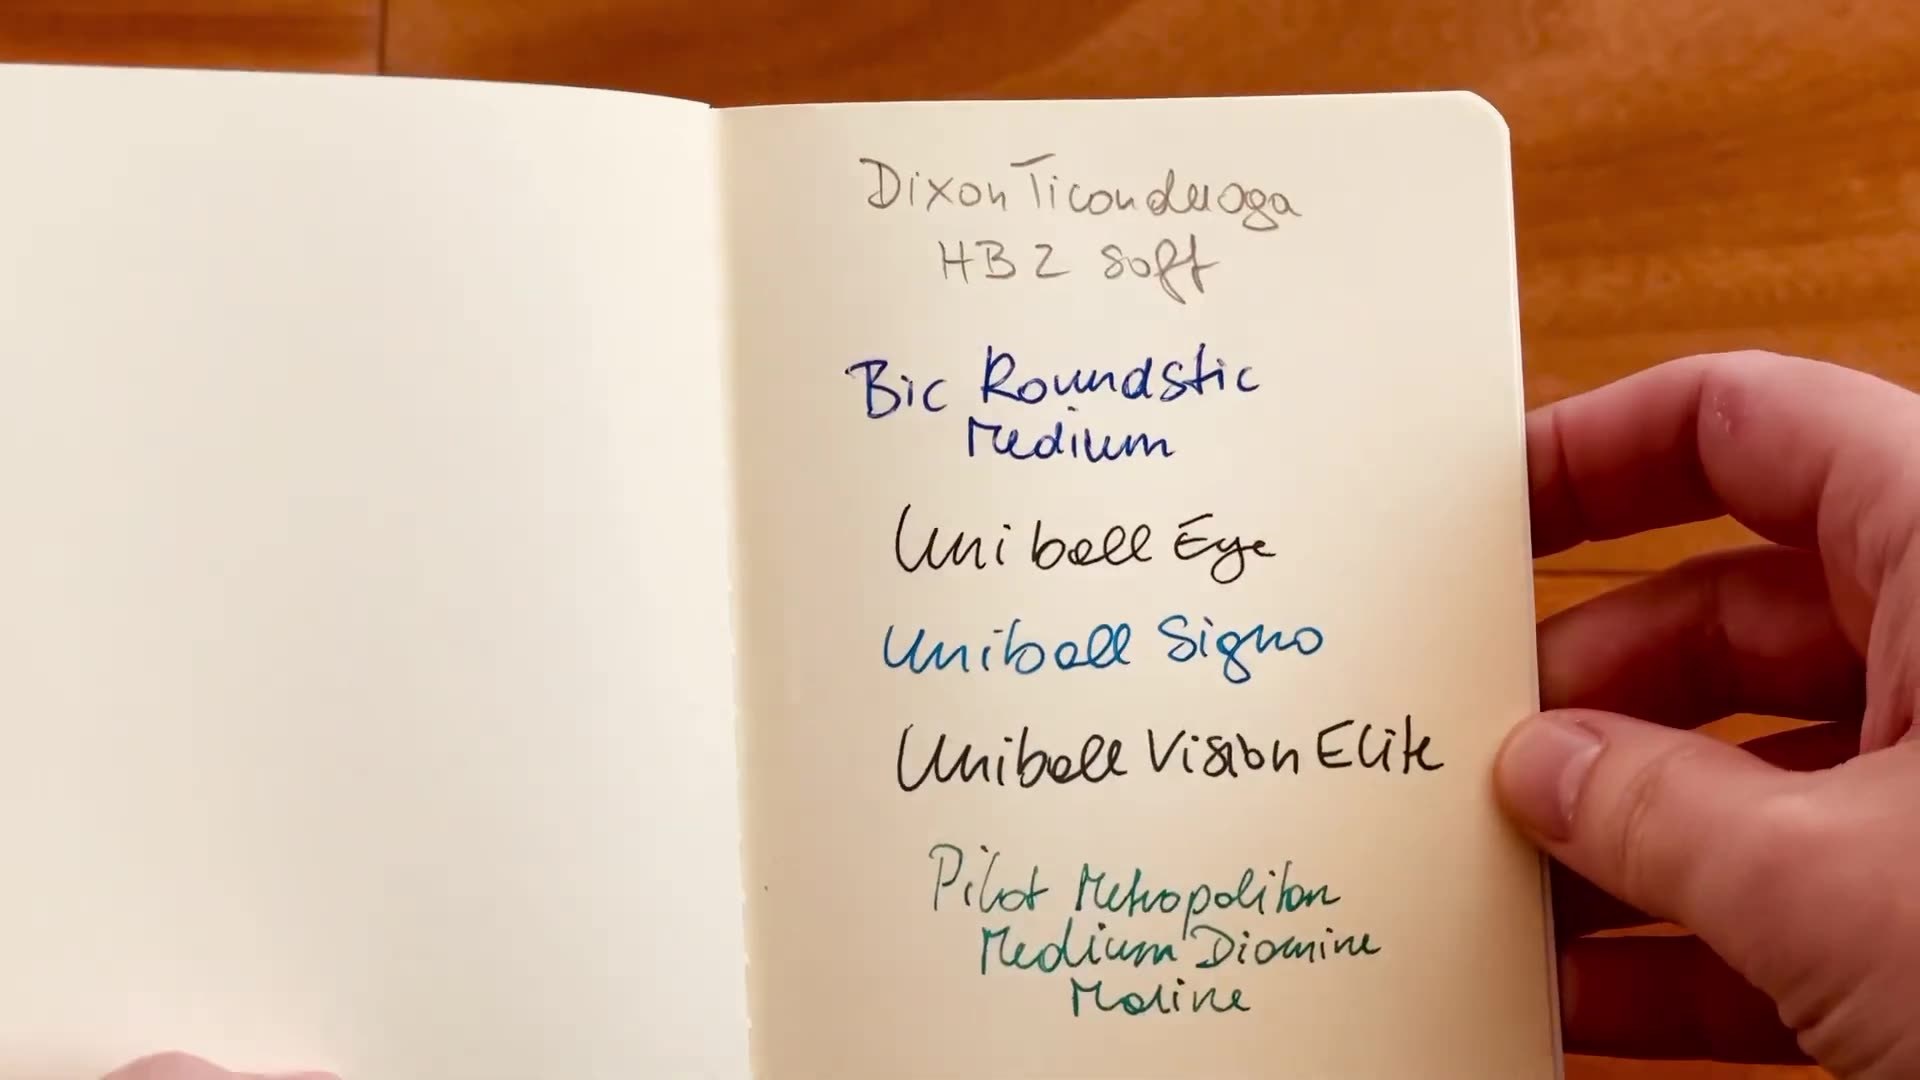 Dixon Ticonderoga
HB 2 soft
Bic Roundstic
Medium
Uniball Eye
Uniball Signo
Uniball Vision Elite
Pilot Metropolitan
Medium Diamine
Marine